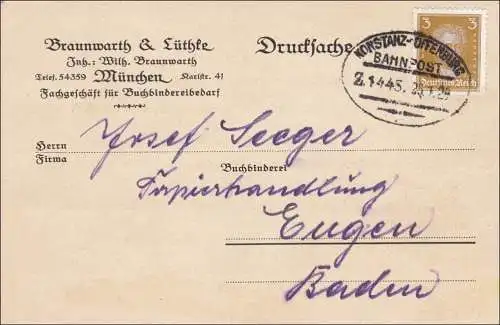 Braunwarth & Lüthke
Inh.: Wilh. Braunwarth
Telef. 54359 München Karlstr. 41
Fachgeschäft für Buchbindereibedarf
Drucksache
KONSTANZ-OFFENBURG
BAHNPOST
Z.1445.
3 3
Deutsches Reich
Herrn Josef Seeger
Firma
Buchbinderei
Papierhandlung
Engen
Baden